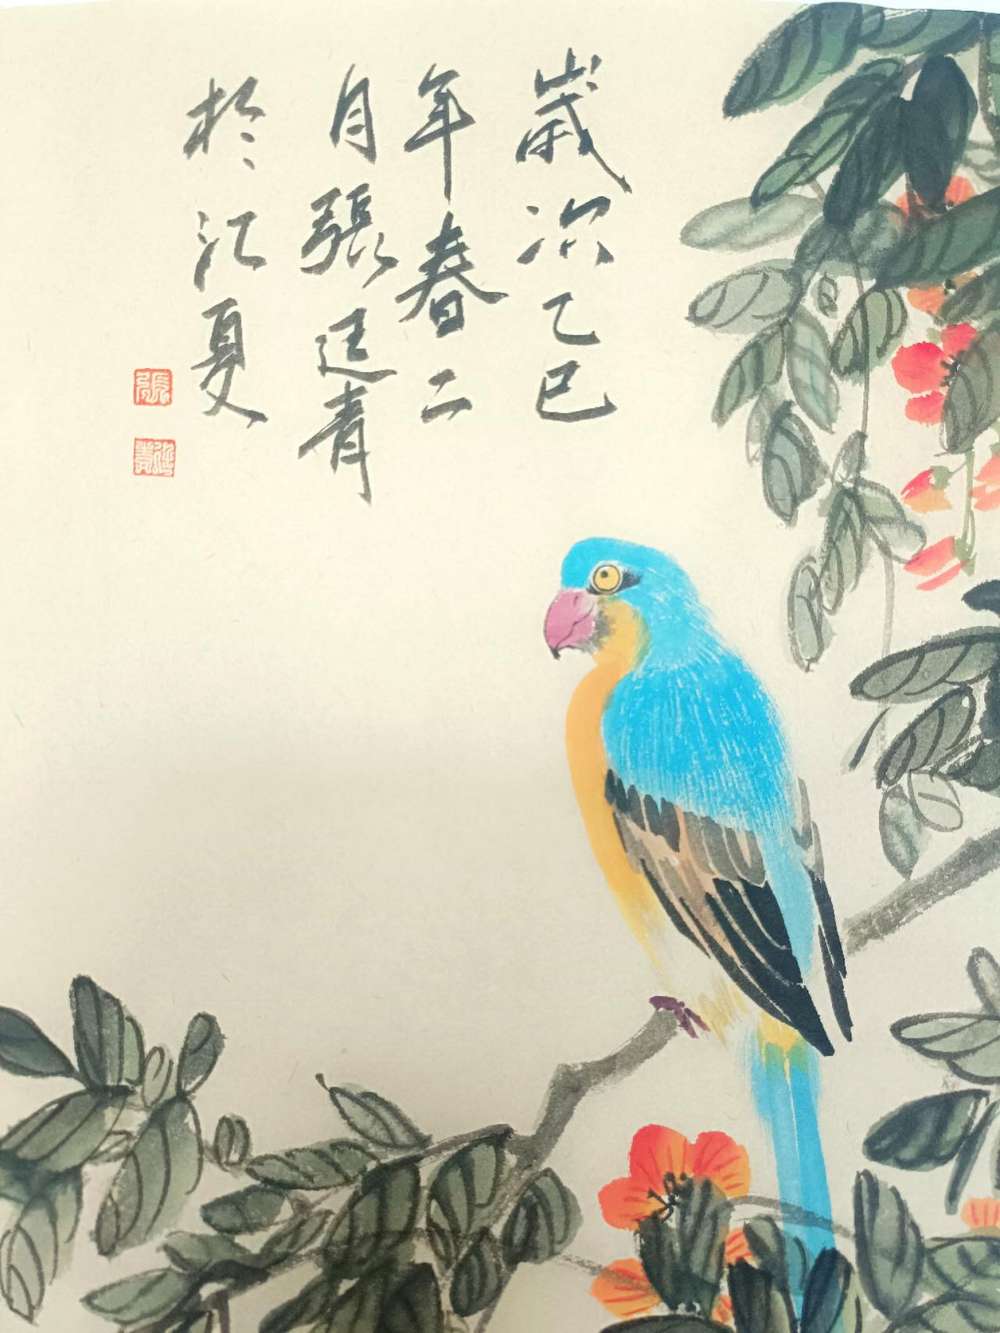 歲次乙巳
年春二
月張廷青
於江夏
張
廷青